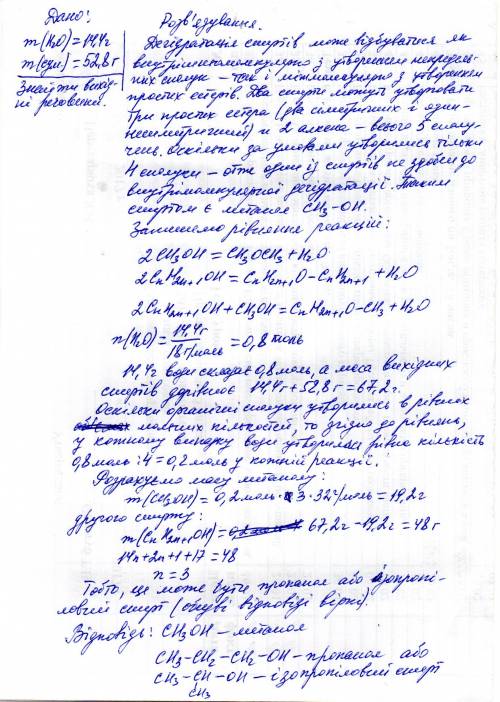 Дано:
m(H₂O)=14,4г
m(сум)=52,8г
Знайти вихід-
ні речовини.
Розв'язування.
Дегідратація спиртів може відбуватися як
внутрімолекулярно з утворенням непредель-
них сполук – так і міжмолекулярно з утворенням
простих естерів. Два спирти можуть утворювати
три простих естера (два симетричних і один –
несиметричний) и 2 алкена – всього 5 сполу-
чень. Оскільки за умовами утворились тільки
4 сполуки – отже один із спиртів не здібен до
внутрімолекулярної дегідратації. Таким
спиртом є метанол CH₃–OH.
Запишемо рівняння реакцій:
2CH₃OH = CH₃OCH₃ + H₂O
2CnH2n+1OH = CnH2n+1O–CnH2n+1 + H₂O
2CnH2n+1OH + CH₃OH = CnH2n+1O–CH₃ + H₂O
n(H₂O) = 14,4г / 18г/моль = 0,8 моль
14,4г води складає 0,8 моль, а маса вихідних
спиртів дорівнює 14,4г + 52,8г = 67,2г.
Оскільки органічні сполуки утворились в рівних
мольних кількостей, то згідно до рівнень,
у кожному випадку води утворилась рівна кількість
0,8 моль : 4 = 0,2 моль у кожній реакції.
Розрахуємо масу метанолу:
m(CH₃OH) = 0,2 моль · 3 · 32г/моль = 19,2г
другого спирту:
m(CnH2n+1OH) = 67,2г – 19,2г = 48г
14n + 2n + 1 + 17 = 48
n = 3
Тобто, це може бути пропанол або ізопропі-
ловий спирт (обидві відповіді вірні).
Відповідь: CH₃OH – метанол
CH₃–CH₂–CH₂–OH – пропанол або
CH₃–CH–OH – ізопропіловий спирт
CH₃